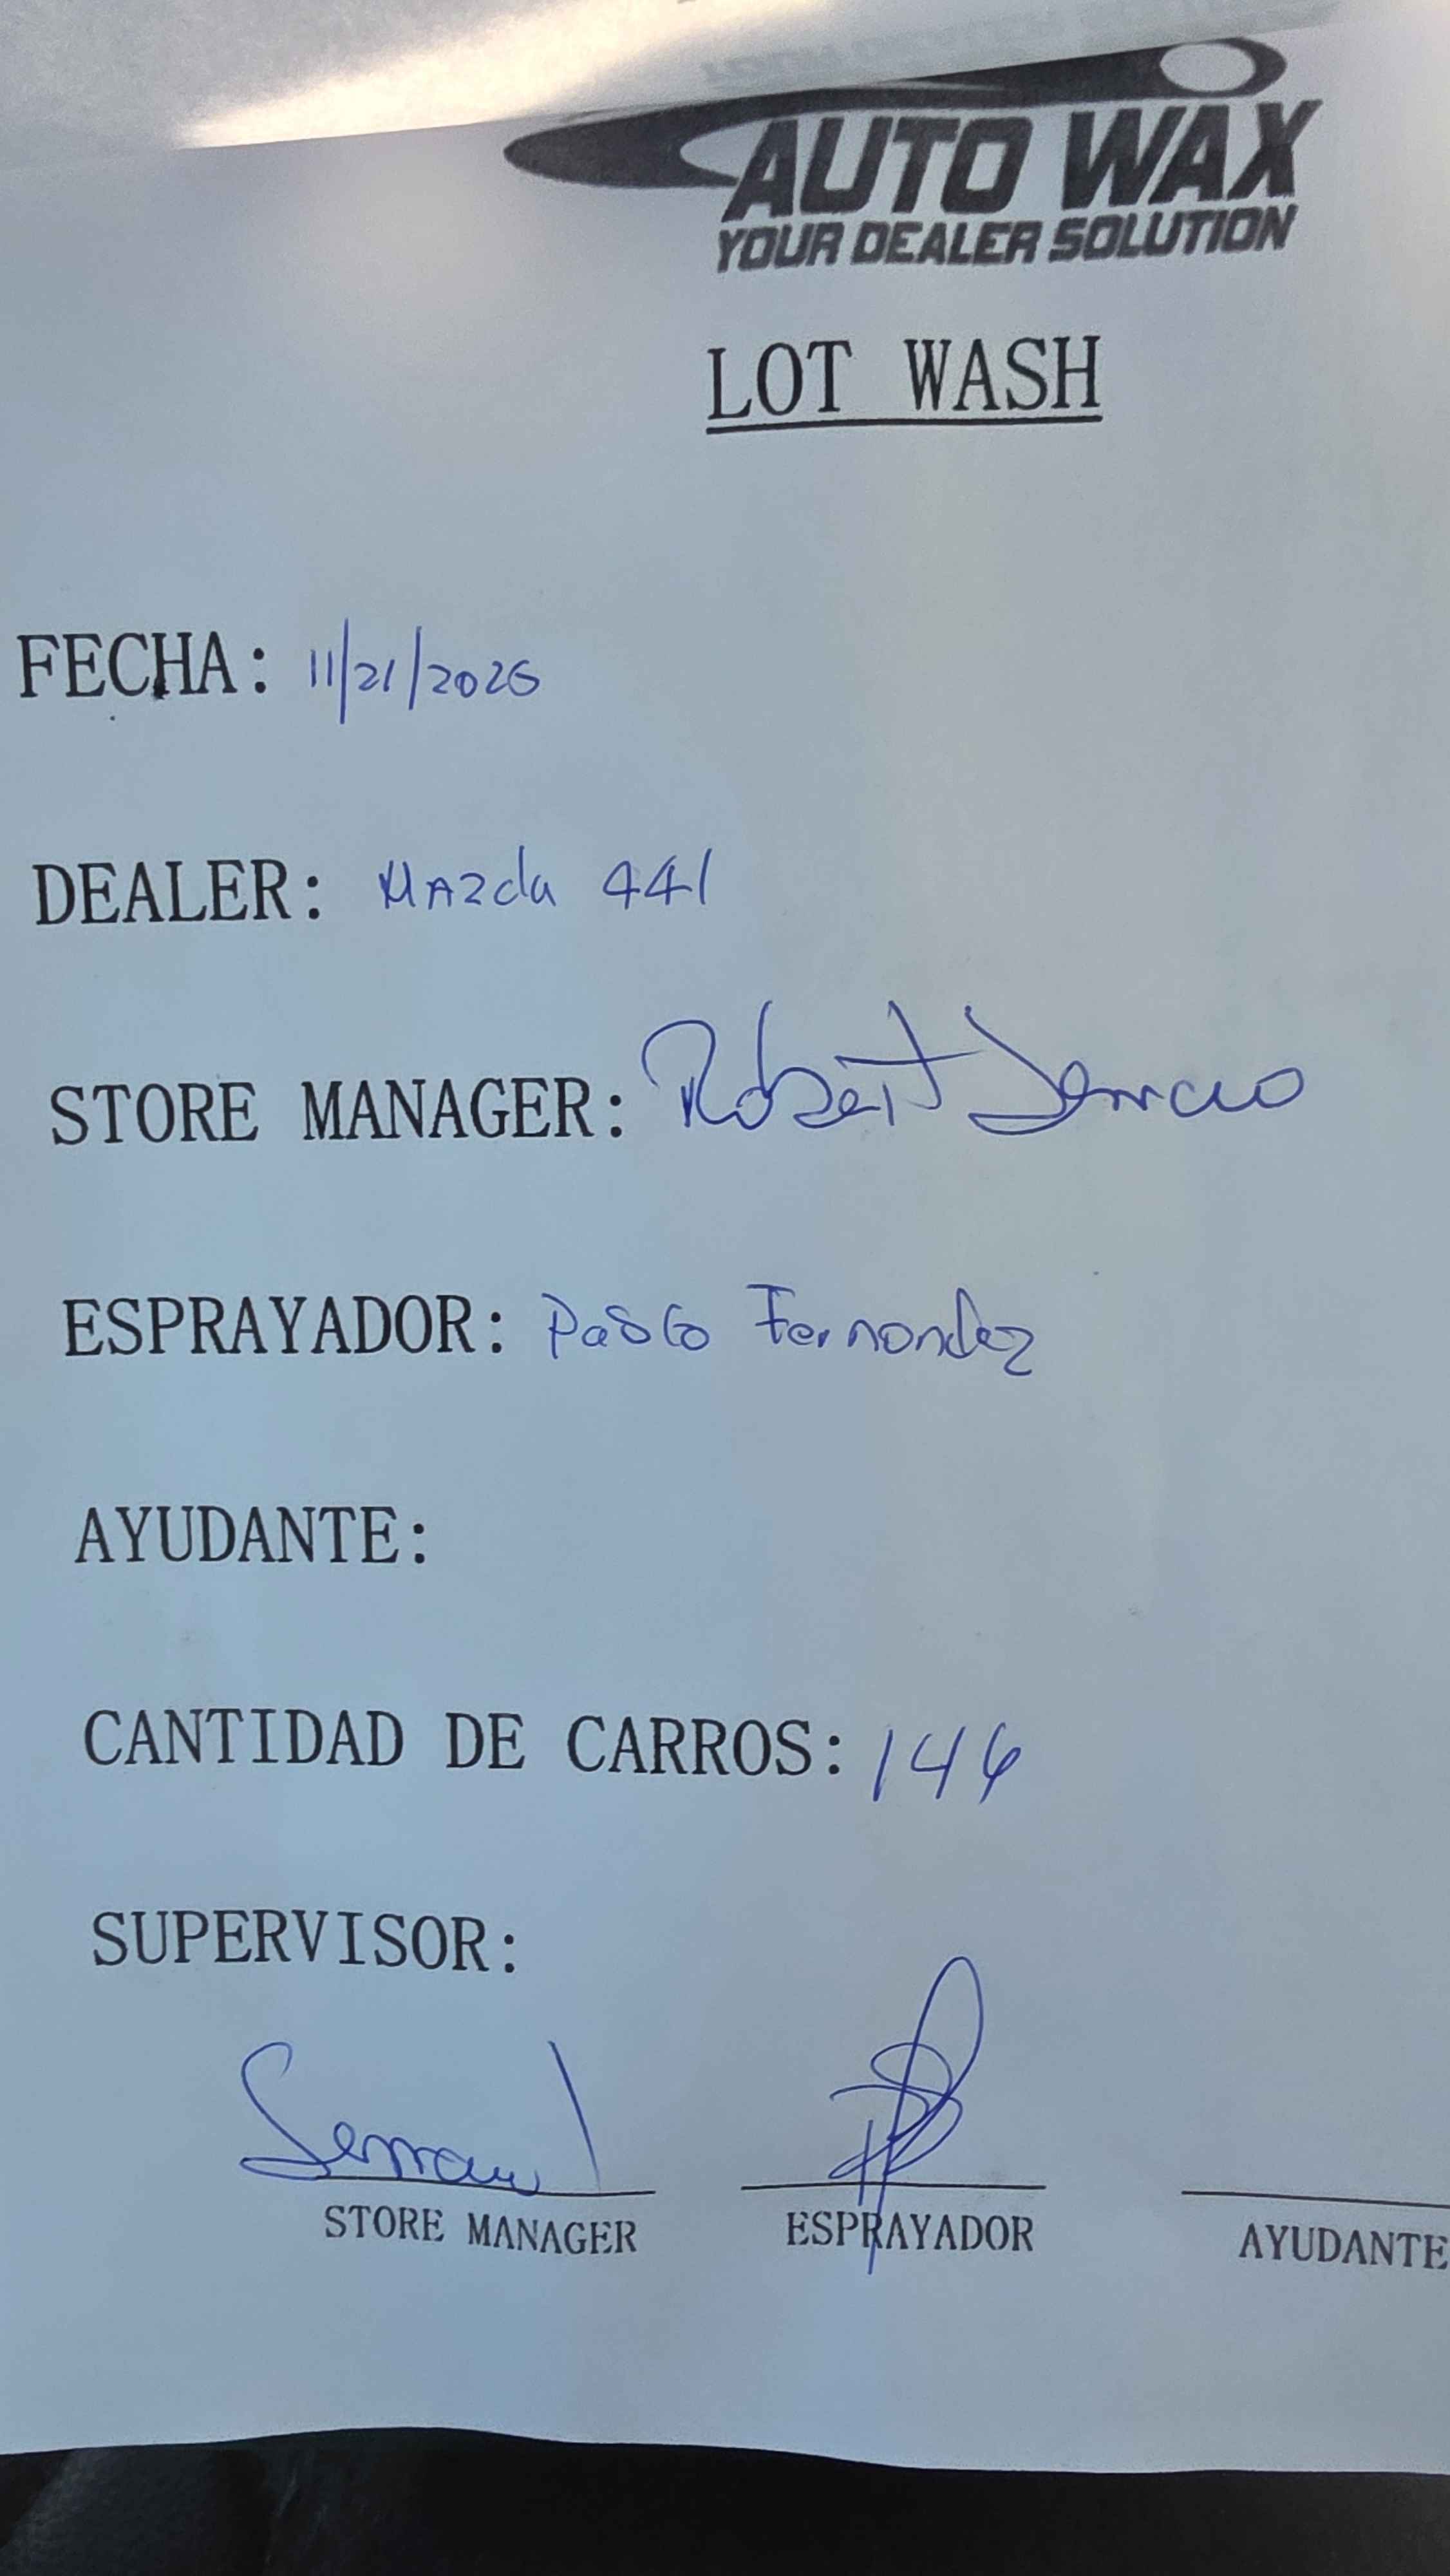 AUTO WAX
YOUR DEALER SOLUTION
LOT WASH
FECHA: 11/21/2025
DEALER: MAzda 441
STORE MANAGER: Robert Serrano
ESPRAYADOR: Pablo Fernandez
AYUDANTE:
CANTIDAD DE CARROS: 146
SUPERVISOR:
Serrano
STORE MANAGER ESPRAYADOR AYUDANTE